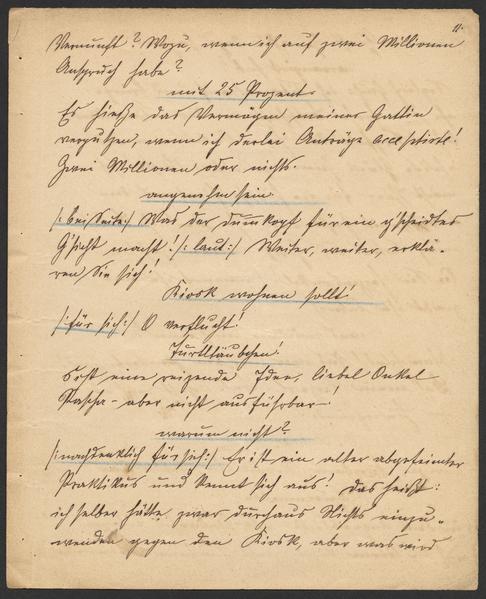 11.
Vernunft? Wozu, wenn ich auf zwei Millionen
Anspruch habe?
mit 25 Prozent.
Es hieße das Vermögen meiner Gattin
verputzen, wenn ich derlei Anträge acceptirte!
Zwei Millionen oder nichts.
angenehm sein.
/:bei Seite:/ Was der Dumkopf für ein g'scheidtes
G'sicht macht! /:laut:/ Weiter, weiter, erklä-
ren Sie sich!
Kiosk wohnen sollt!
/:für sich:/ O verflucht!
Turtltäubchen!
eine reizende Idee, liebes Onkel
Pascha - aber nicht ausführbar!
warum nicht?
/:nachdenklich für sich:/ Er ist ein alter abgefeimter
Praktikus und kennt sich aus! Das heißt:
ich selber hätte zwar durchaus Nichts einzu-
wenden gegen den Kiosk, aber was wird